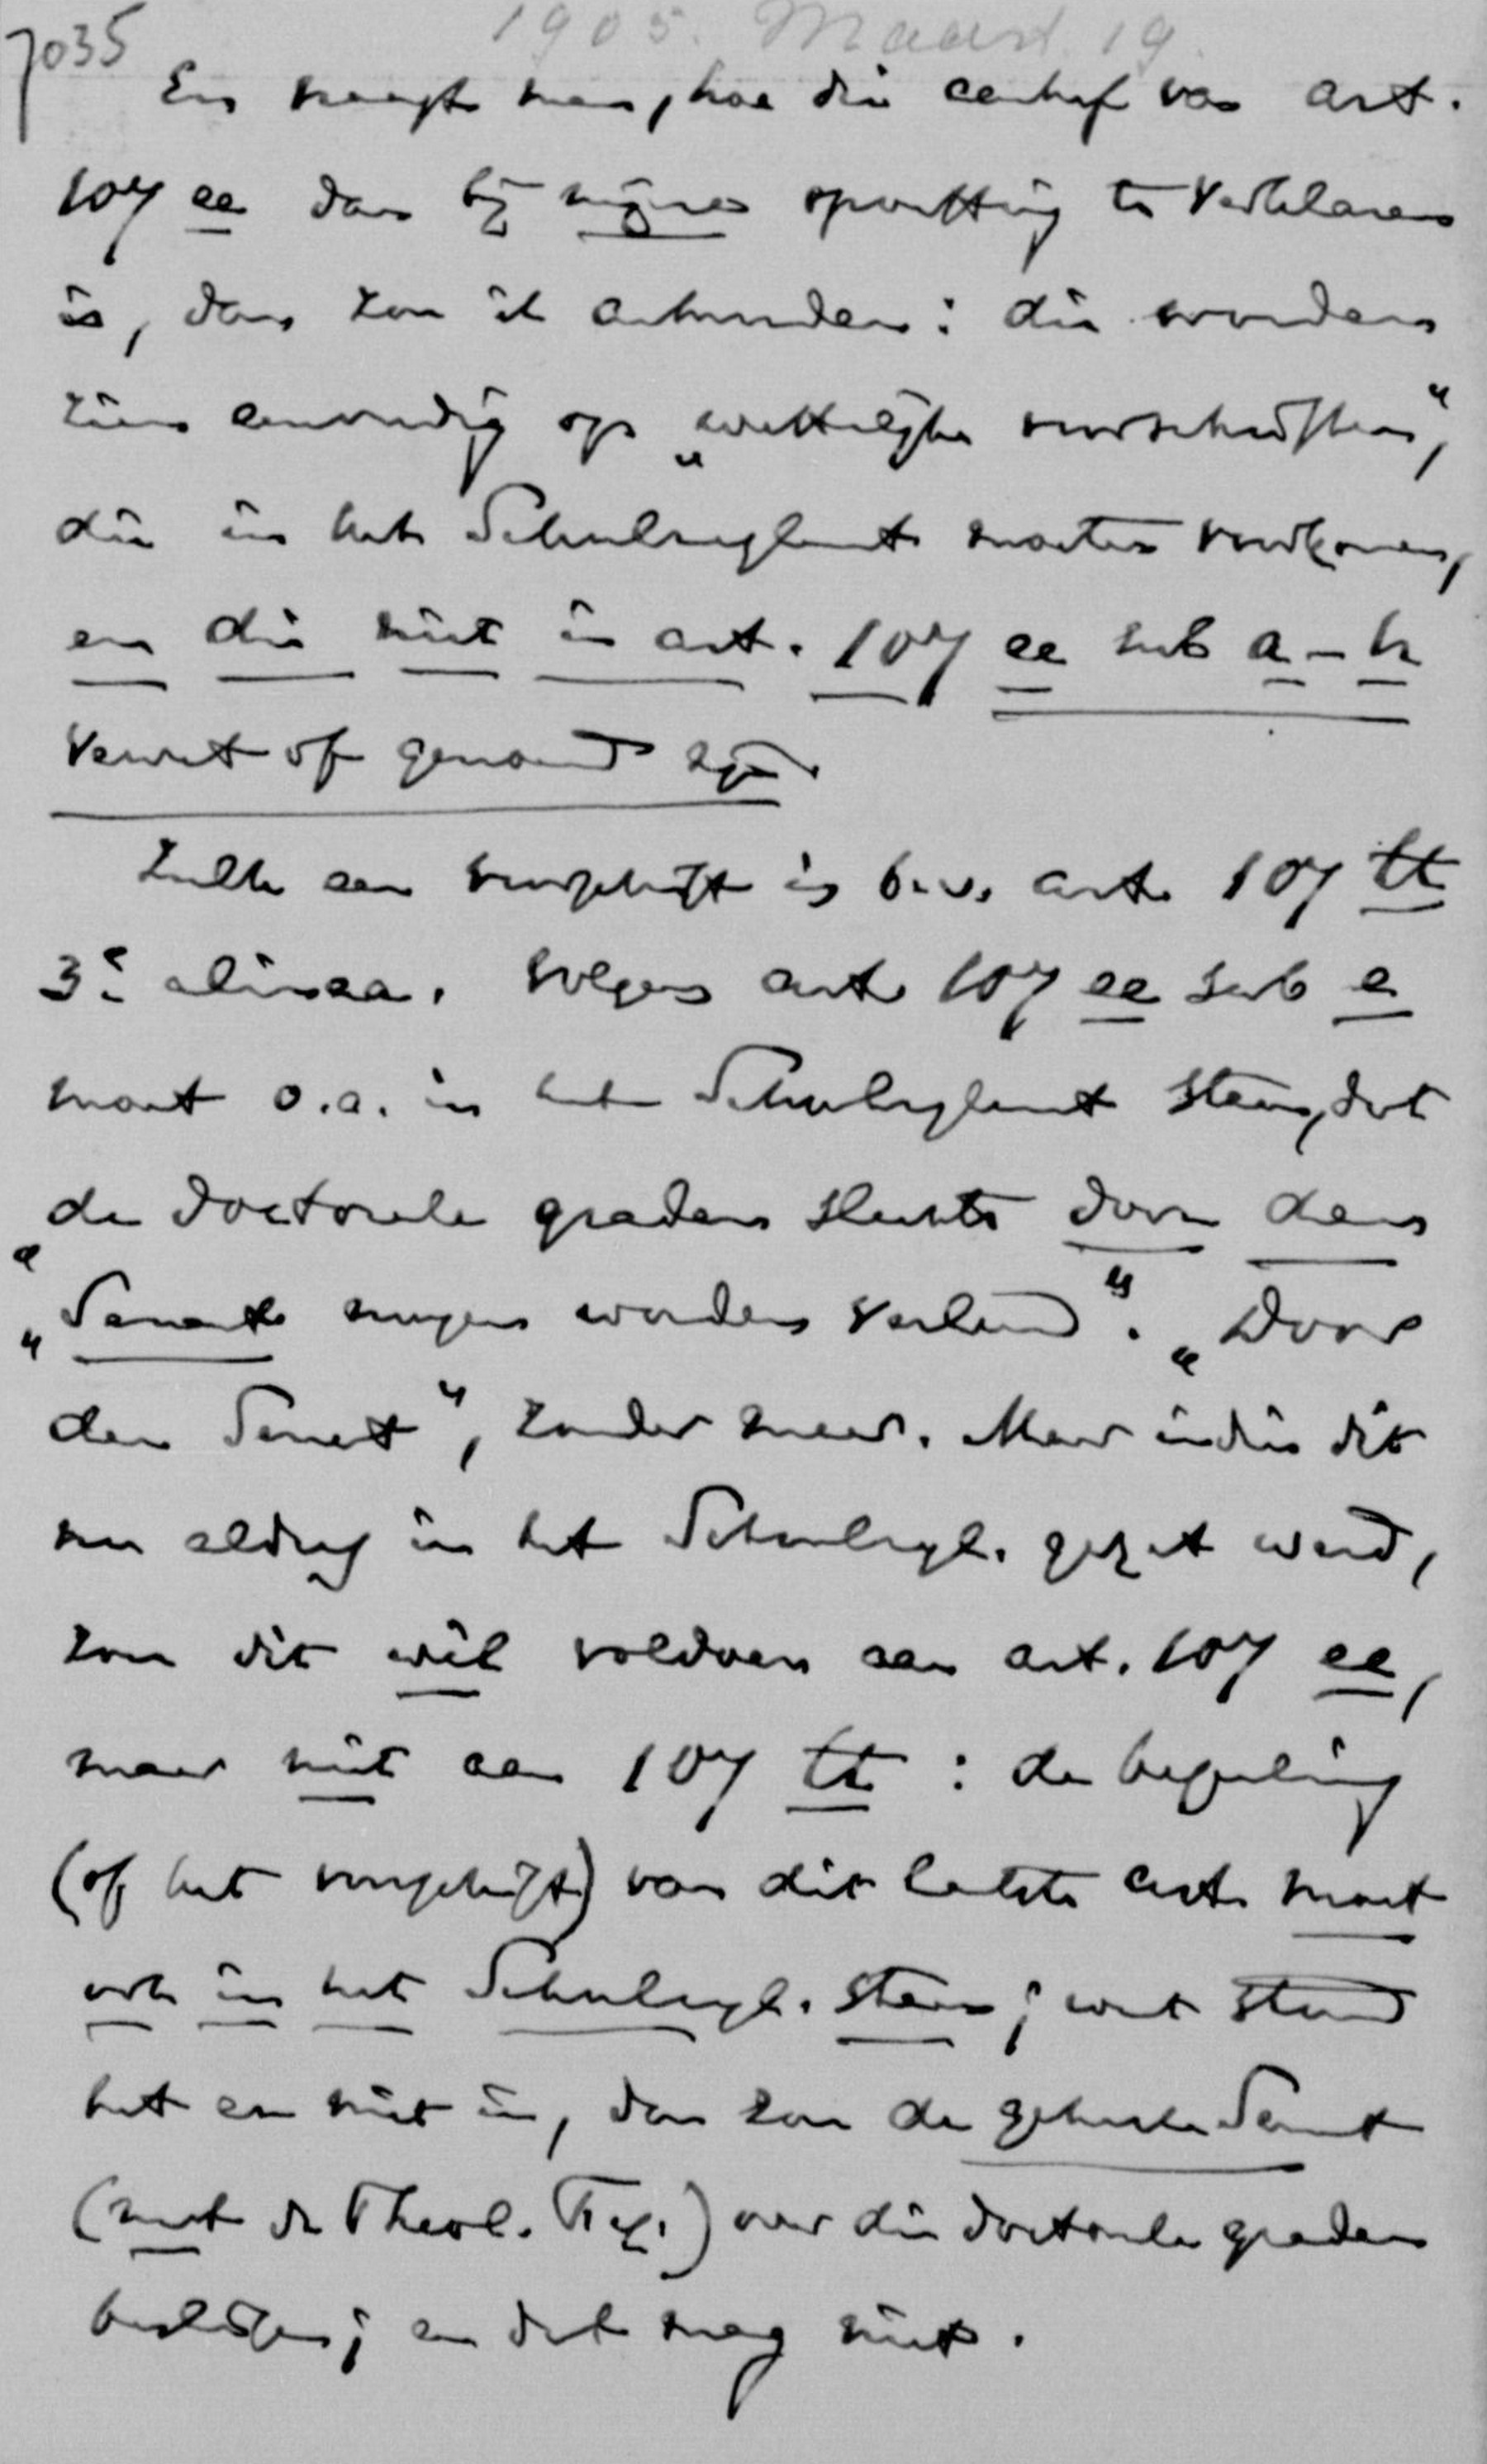 7035 1905. Maart 19.
En vraagt men, hoe die aanhef van art.
107 ee dan bij mijne opvatting te verklaren
is, dan zou ik antwoorden: die woorden
zien eenvoudig op „wettelijke voorschriften",
die in het Schoolreglement moeten voorkomen,
en die niet in art. 107 ee sub a-h
vervat of genoemd zijn.
Zulk een voorschrift is b.v. art. 107 tt
3e alinea. Volgens art. 107 ee sub e
moet o.a. in het Schoolreglement staan, dat
de doctorale graden slechts door den
„Senaat mogen worden verleend". „Door
den Senaat", zonder meer. Maar indien dit
nu aldus in het Schoolregl. gezet werd,
zou dit wèl voldoen aan art. 107 ee,
maar niet aan 107 tt: de bepaling
(of het voorschrift) van dit laatste art. moet
ook in het Schoolregl. staan; want stond
het er niet in, dan zou de geheele Senaat
(met de Theol. Fac.) over die doctorale graden
beslissen; en dat mag niet.